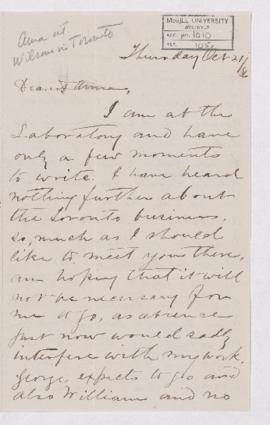 Anna at
Wilson's in Toronto
McGILL UNIVERSITY
ARCHIVES
ACC. NO. 1010
REF.
Thursday Oct 21/
Dear Anna,
I am at the
Laboratory and have
only a few moments
to write. I have heard
nothing further about
the Toronto business.
So, much as I should
like to meet you there,
am hoping that it will
not be necessary for
me to go, as absence
just now would sadly
interfere with my work.
George expects to go and
also William and no